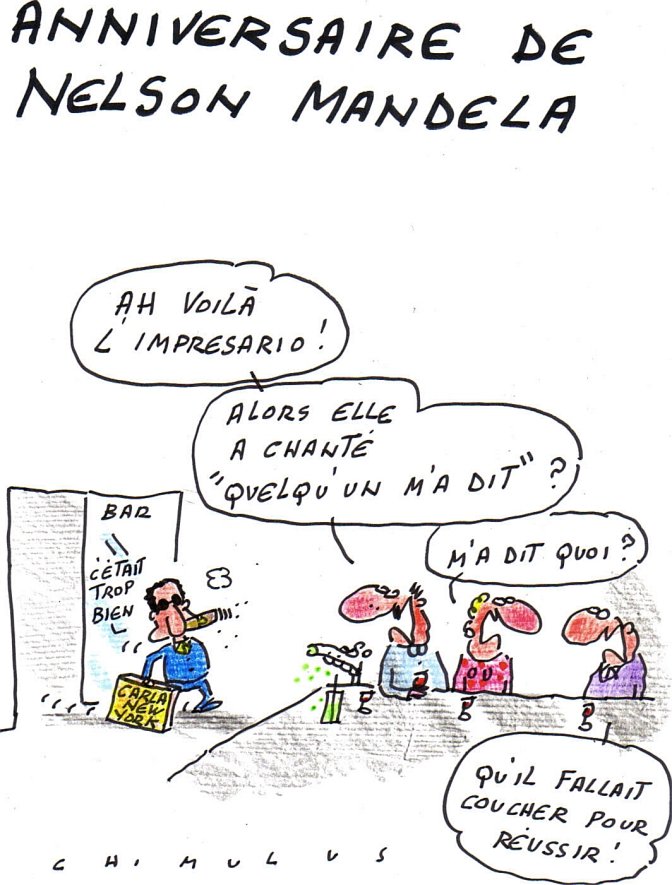 ANNIVERSAIRE DE
NELSON MANDELA
AH VOILÀ
L'IMPRESARIO !
ALORS ELLE
A CHANTÉ
"QUELQU'UN M'A DIT" ?
M'A DIT QUOI ?
BAR
C'ÉTAIT
TROP
BIEN
CARLA
NEW
YORK
QU'IL FALLAIT
COUCHER POUR
RÉUSSIR !
CHIMULUS